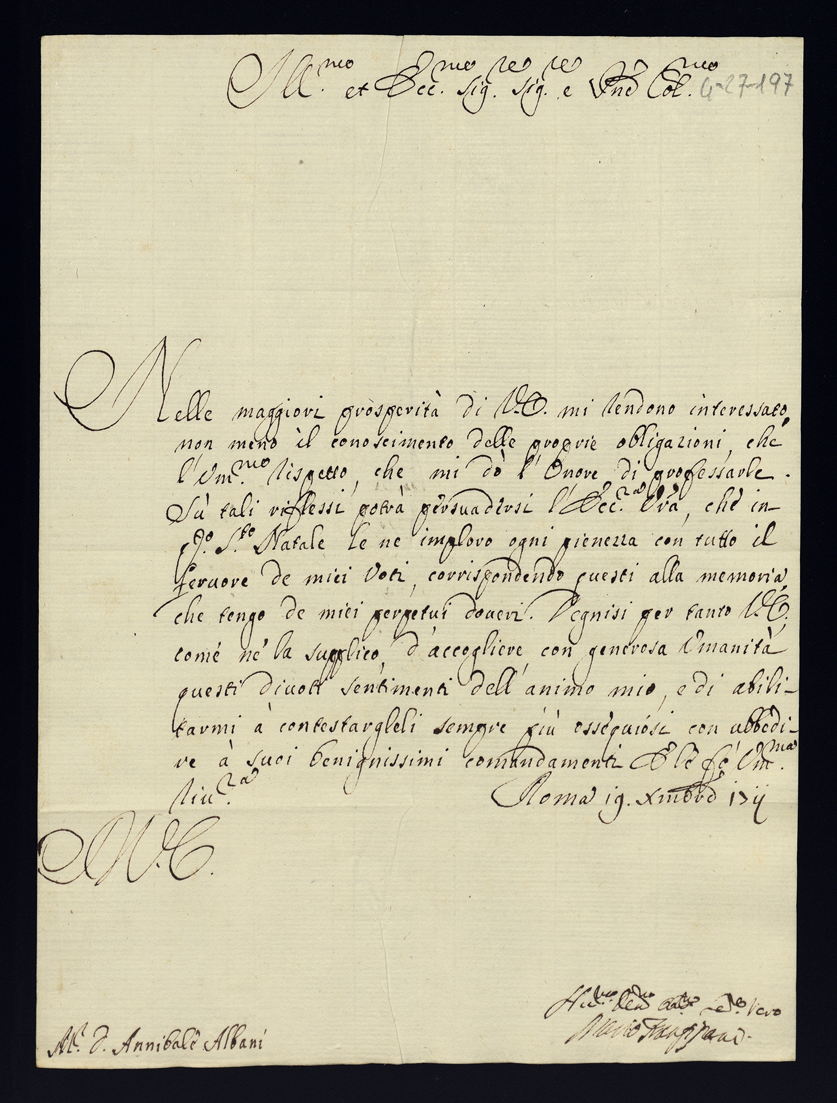 Ill.mo et Ecc.mo Sig.re Sig.re e Pne Col.mo 4-27-197
Nelle maggiori prosperità di V.E. mi rendono interessato,
non meno il conoscimento delle proprie obligazioni, che
l'Um.mo rispetto, che mi dò l'Onore di professarle.
Sù tali riflessi potrà persuadersi l'Ecc.za Vra, che in
q.o S.to Natale le ne imploro ogni pienezza con tutto il
fervore de miei Voti, corrispondendo questi alla memoria,
che tengo de miei perpetui doveri. Degnisi per tanto V.E.,
come ne la supplico, d'accogliere con generosa Umanità
questi divoti sentimenti dell'animo mio, e di abili-
tarmi à contestargleli sempre più ossequiosi con ubbedi-
re à suoi benignissimi comandamenti E le fò Um.ma
riu.za
Roma 19. Xmbre 17
V.E.
M.r D. Annibale Albani
Hu.mo Dev.mo Vero
Mario Frangipani